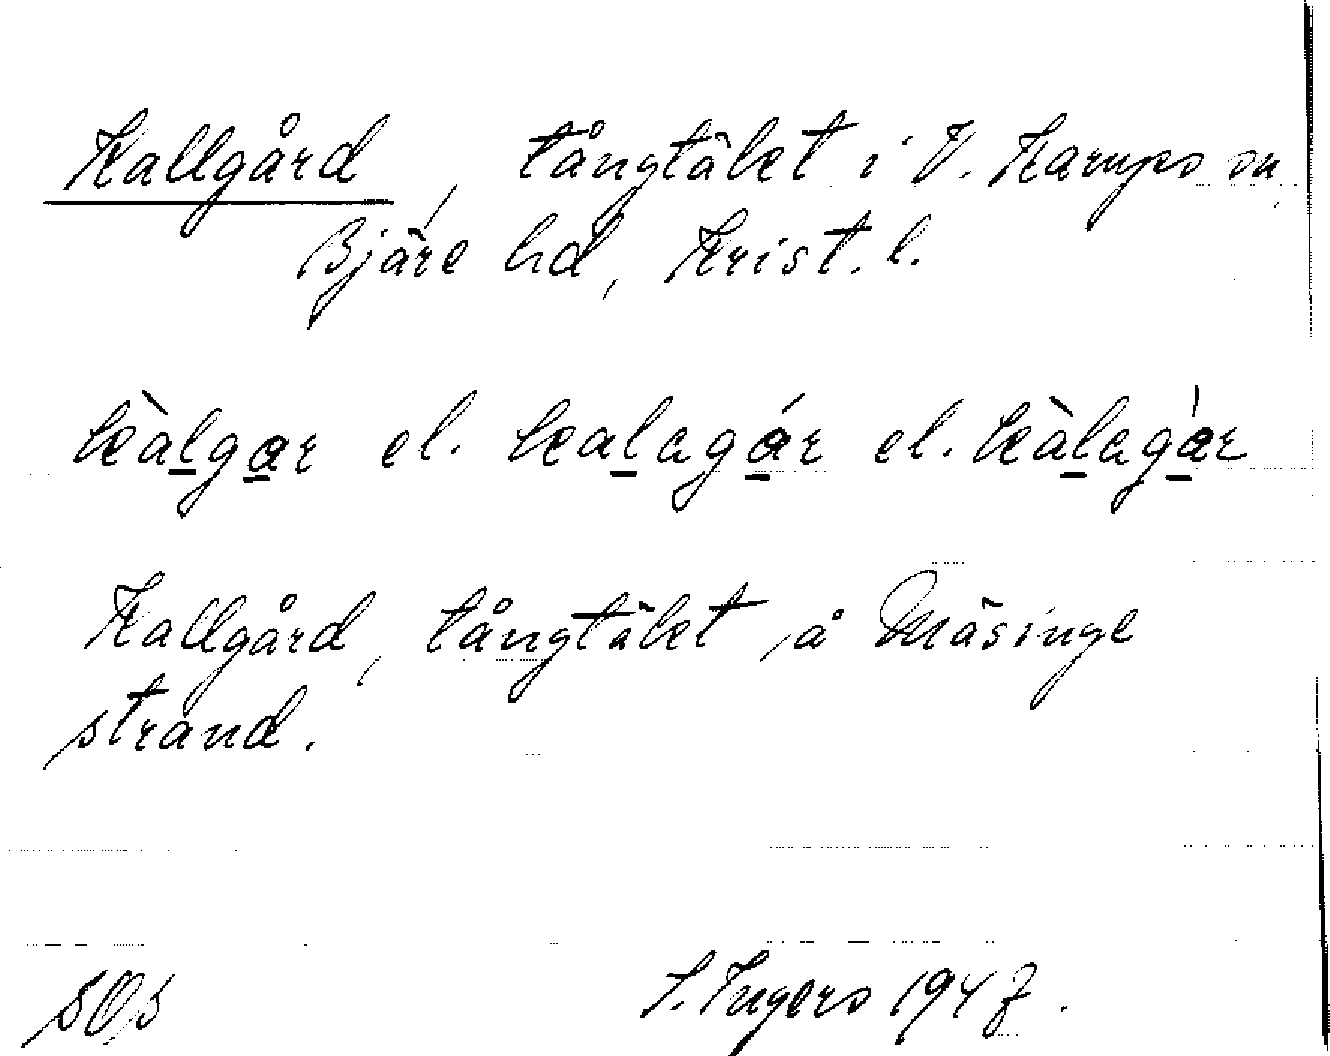 Kallgård, tångtäkt i V. Karups sn,
Bjäre hd, Krist. l.
kàlgar el. kalagár el. kàlagár
Kallgård, tångtäkt å Mäsinge
strand.
SOs
I. Ingers 1947.